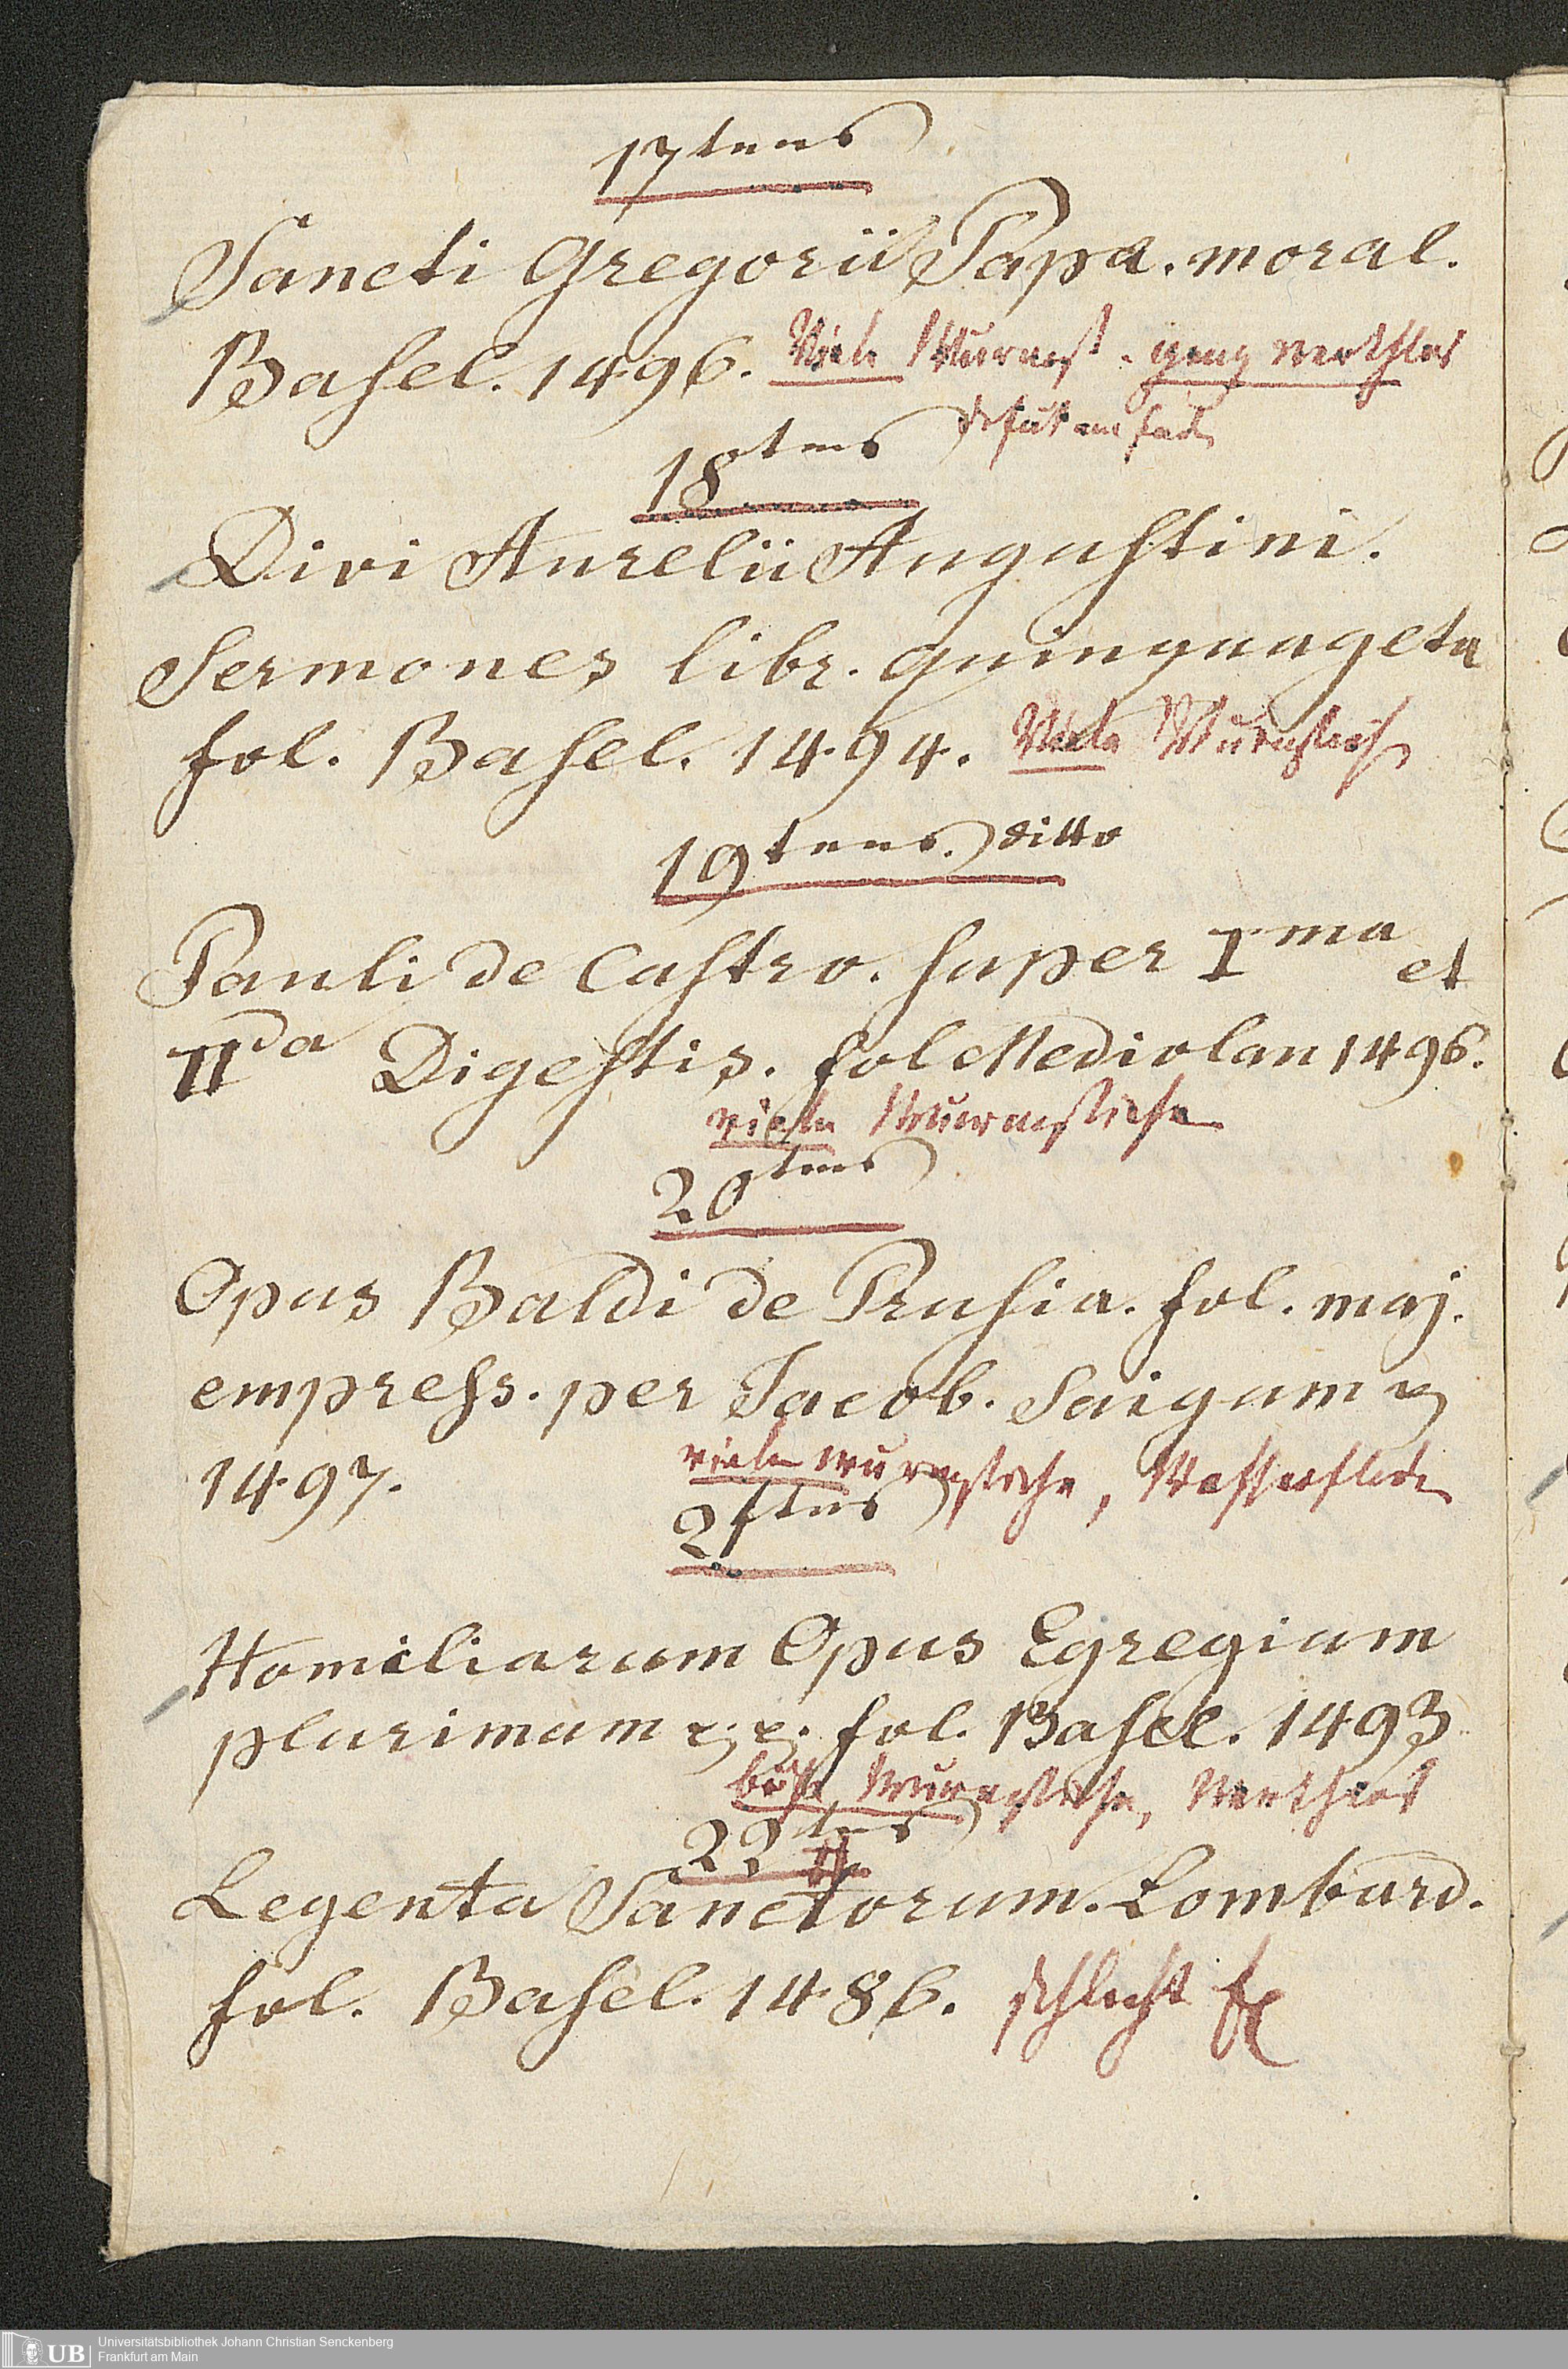 17tens
Sancti Gregorii Papa. moral.
Basel. 1496. Viele Wurmst. ganz werthlos
defect am
18tens
Divi Aurelii Augustini.
Sermones libr. quinquageta
fol. Basel. 1494. Viele Wurmstiche
19tens. ditto
Pauli de Castro. super Ima et
IIda Digestis. fol Mediolan 1496.
viele Wurmstiche
20tens
Opus Baldi de Prusia. fol. maj.
empress. per Jacob. Saigum
1497. viele wurmstiche, Wasserflecken
21tens
Homiliarum Opus Egregium
plurimum fol. Basel. 1493
böse Wurmstiche, Werthlos
22tens
Legenta Sanctorum. Lombard.
fol. Basel. 1486. schlecht
Universitätsbibliothek Johann Christian Senckenberg
Frankfurt am Main
UB